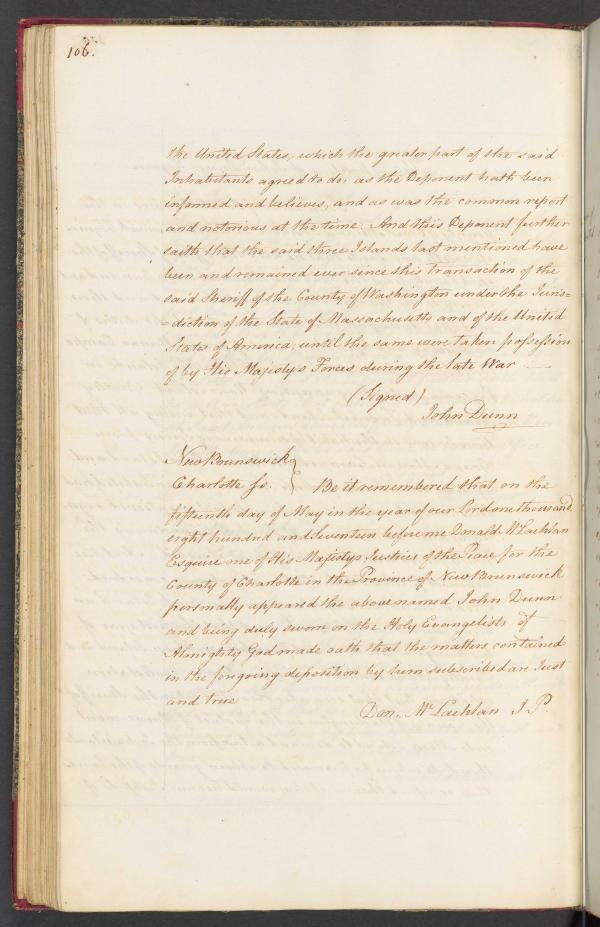 106.
the United States, which the greater part of the said
Inhabitants agreed to do, as the Deponent hath been
informed and believes, and as was the common report
and notorious at the time. And this Deponent further
saith that the said three Islands last mentioned have
been and remained ever since this transaction of the
said Sheriff of the County of Washington under the Juris=
=diction of the State of Massachusetts and of the United
States of America, until the same were taken possession
of by His Majestys Forces during the late War
(Signed)
John Dunn
New Brunswick
Charlotte Ss. } Be it remembered that on the
fifteenth day of May in the year of our Lord one thousand
eight hundred and Seventeen before me Donald McLachlan
Esquire one of His Majestys Justices of the Peace for the
County of Charlotte in the Province of New Brunswick
personally appeared the above named John Dunn
and being duly sworn on the Holy Evangelists of
Almighty God made oath that the matters contained
in the foregoing deposition by him subscribed are Just
and true
Don. McLachlan J P.